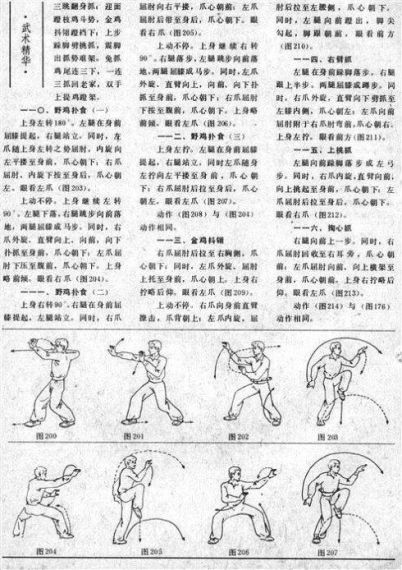 ·武术精华·
三跳翻身抓；迎面
蹬枝鸡斗势，金鸡
抖翎蹬裆下；上步
跺脚劈挑抓，踢脚
出抓势难架；兔抓
鸡尾连三下，一连
三抓回老家，双手
上提鸡蹬架。
一一〇、野鸡扑食（一）
上身左转180°。左腿在身前
屈膝提起，右腿站立。同时，左
爪随上身左转之势屈肘，内旋向
左平搂至身前，爪心朝下；右爪
屈肘、内旋下按至身后，爪心朝
左。眼看左爪（图203）。
上动不停。上身继续左转
90°，左腿下落，右腿跳步向前落
地，两腿屈膝成马步。同时，右
爪外旋，直臂向上、向前、向下
扑抓至身前，爪心朝下；左爪屈
肘下压至腹前，爪心朝下。上身
略前倾。眼看右爪（图204）。
一一一、野鸡扑食（二）
上身右转90°。右腿在身前屈
膝提起，左腿站立。同时，右爪
屈肘向右平搂，爪心朝前；左爪
屈肘后摆至身后，爪心朝下。眼
看右爪（图205）。
上动不停，上身继续右转
90°。右腿落步，左腿跳步向前落
地，两腿屈膝成马步。同时，左爪
外旋，直臂向上，向前、向下扑
抓至身前，爪心朝下；右爪屈肘
下按至腹前，爪心朝下。上身略
前倾。眼看左爪（图206）。
一一二、野鸡扑食（三）
上身左拧，左腿在身前屈膝
提起，右腿站立。同时左爪随身
左拧向左平搂至身前，爪心朝
下；右爪屈肘后拉至身后，爪心
朝左。眼看左爪（图207）。
动作（图208）与（图204）
动作相同。
一一三、金鸡抖翎
右爪屈肘后拉至右胸侧，爪
心朝下；同时，左爪外旋、屈肘
上托至身前，爪心朝上。上身右
拧略后仰。眼看左爪（图209）。
上动不停。右爪向身前直臂
撩击，爪背朝上；左爪内旋，屈
肘后拉至左腰侧，爪心朝下。
同时，左腿向前蹬出，脚尖
勾起，脚跟朝前。眼看前方
（图210）。
一一四、右臂抓
左腿在身前跺脚落步，右腿
跟上半步，两腿屈膝成蹲步。同
时，右爪外旋，直臂向下劈抓至
左膝内侧，爪心朝左；左爪向前
屈肘附于右爪肘弯前，爪心朝右。
上身左拧。眼看前方（图211）。
一一五、上挑抓
右腿向前跺脚落步成左弓
步。同时，右爪内旋，直臂向前、
向上挑起至身前，爪心朝下；左
爪屈肘后拉至身后，爪心朝下。
眼看右爪（图212）。
一一六、掏心抓
右腿向前上一步。同时，右
爪屈肘回收至右耳旁，爪心朝
前；左爪屈肘向前、向上横架至
身前，爪心朝前。上身右拧略后
仰。眼看左爪（图213）。
动作（图214）与（图176）
动作相同。
图200
图201
图202
图203
图204
图205
图206
图207